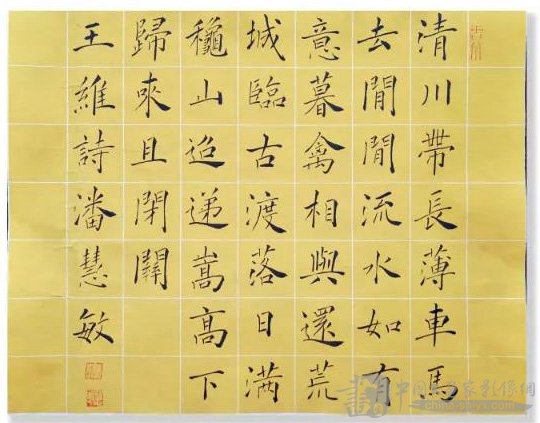 清川帶長薄車馬
去閒閒流水如有
意暮禽相與還荒
城臨古渡落日滿
穐山迢递嵩高下
歸來且閉關
王維詩潘慧敏